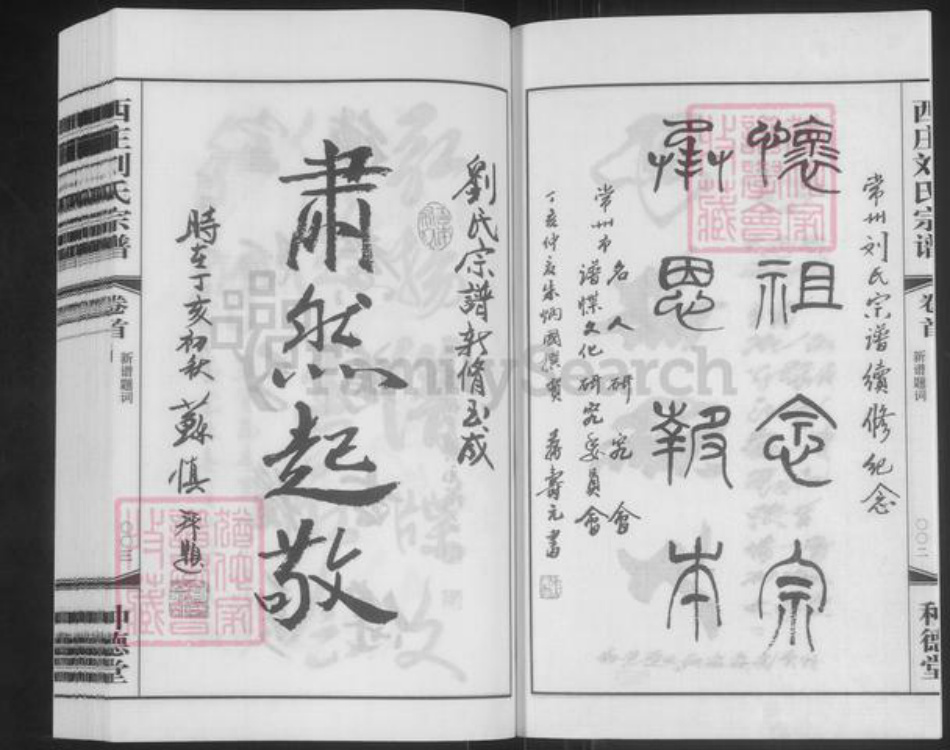 西庄刘氏宗谱
卷首
新谱题词
〇〇二
种德堂
常州刘氏宗谱續修纪念
懷祖念宗
承恩報本
常州市名人研究會
譜牒文化研究委員會
丁亥仲夏朱炳國撰賀 蔣壽元書
劉氏宗譜新修玉成
肅然起敬
時在丁亥初秋 蘇慎 拜題
西庄刘氏宗谱
卷首
新谱题词
〇〇三
种德堂
FamilySearch